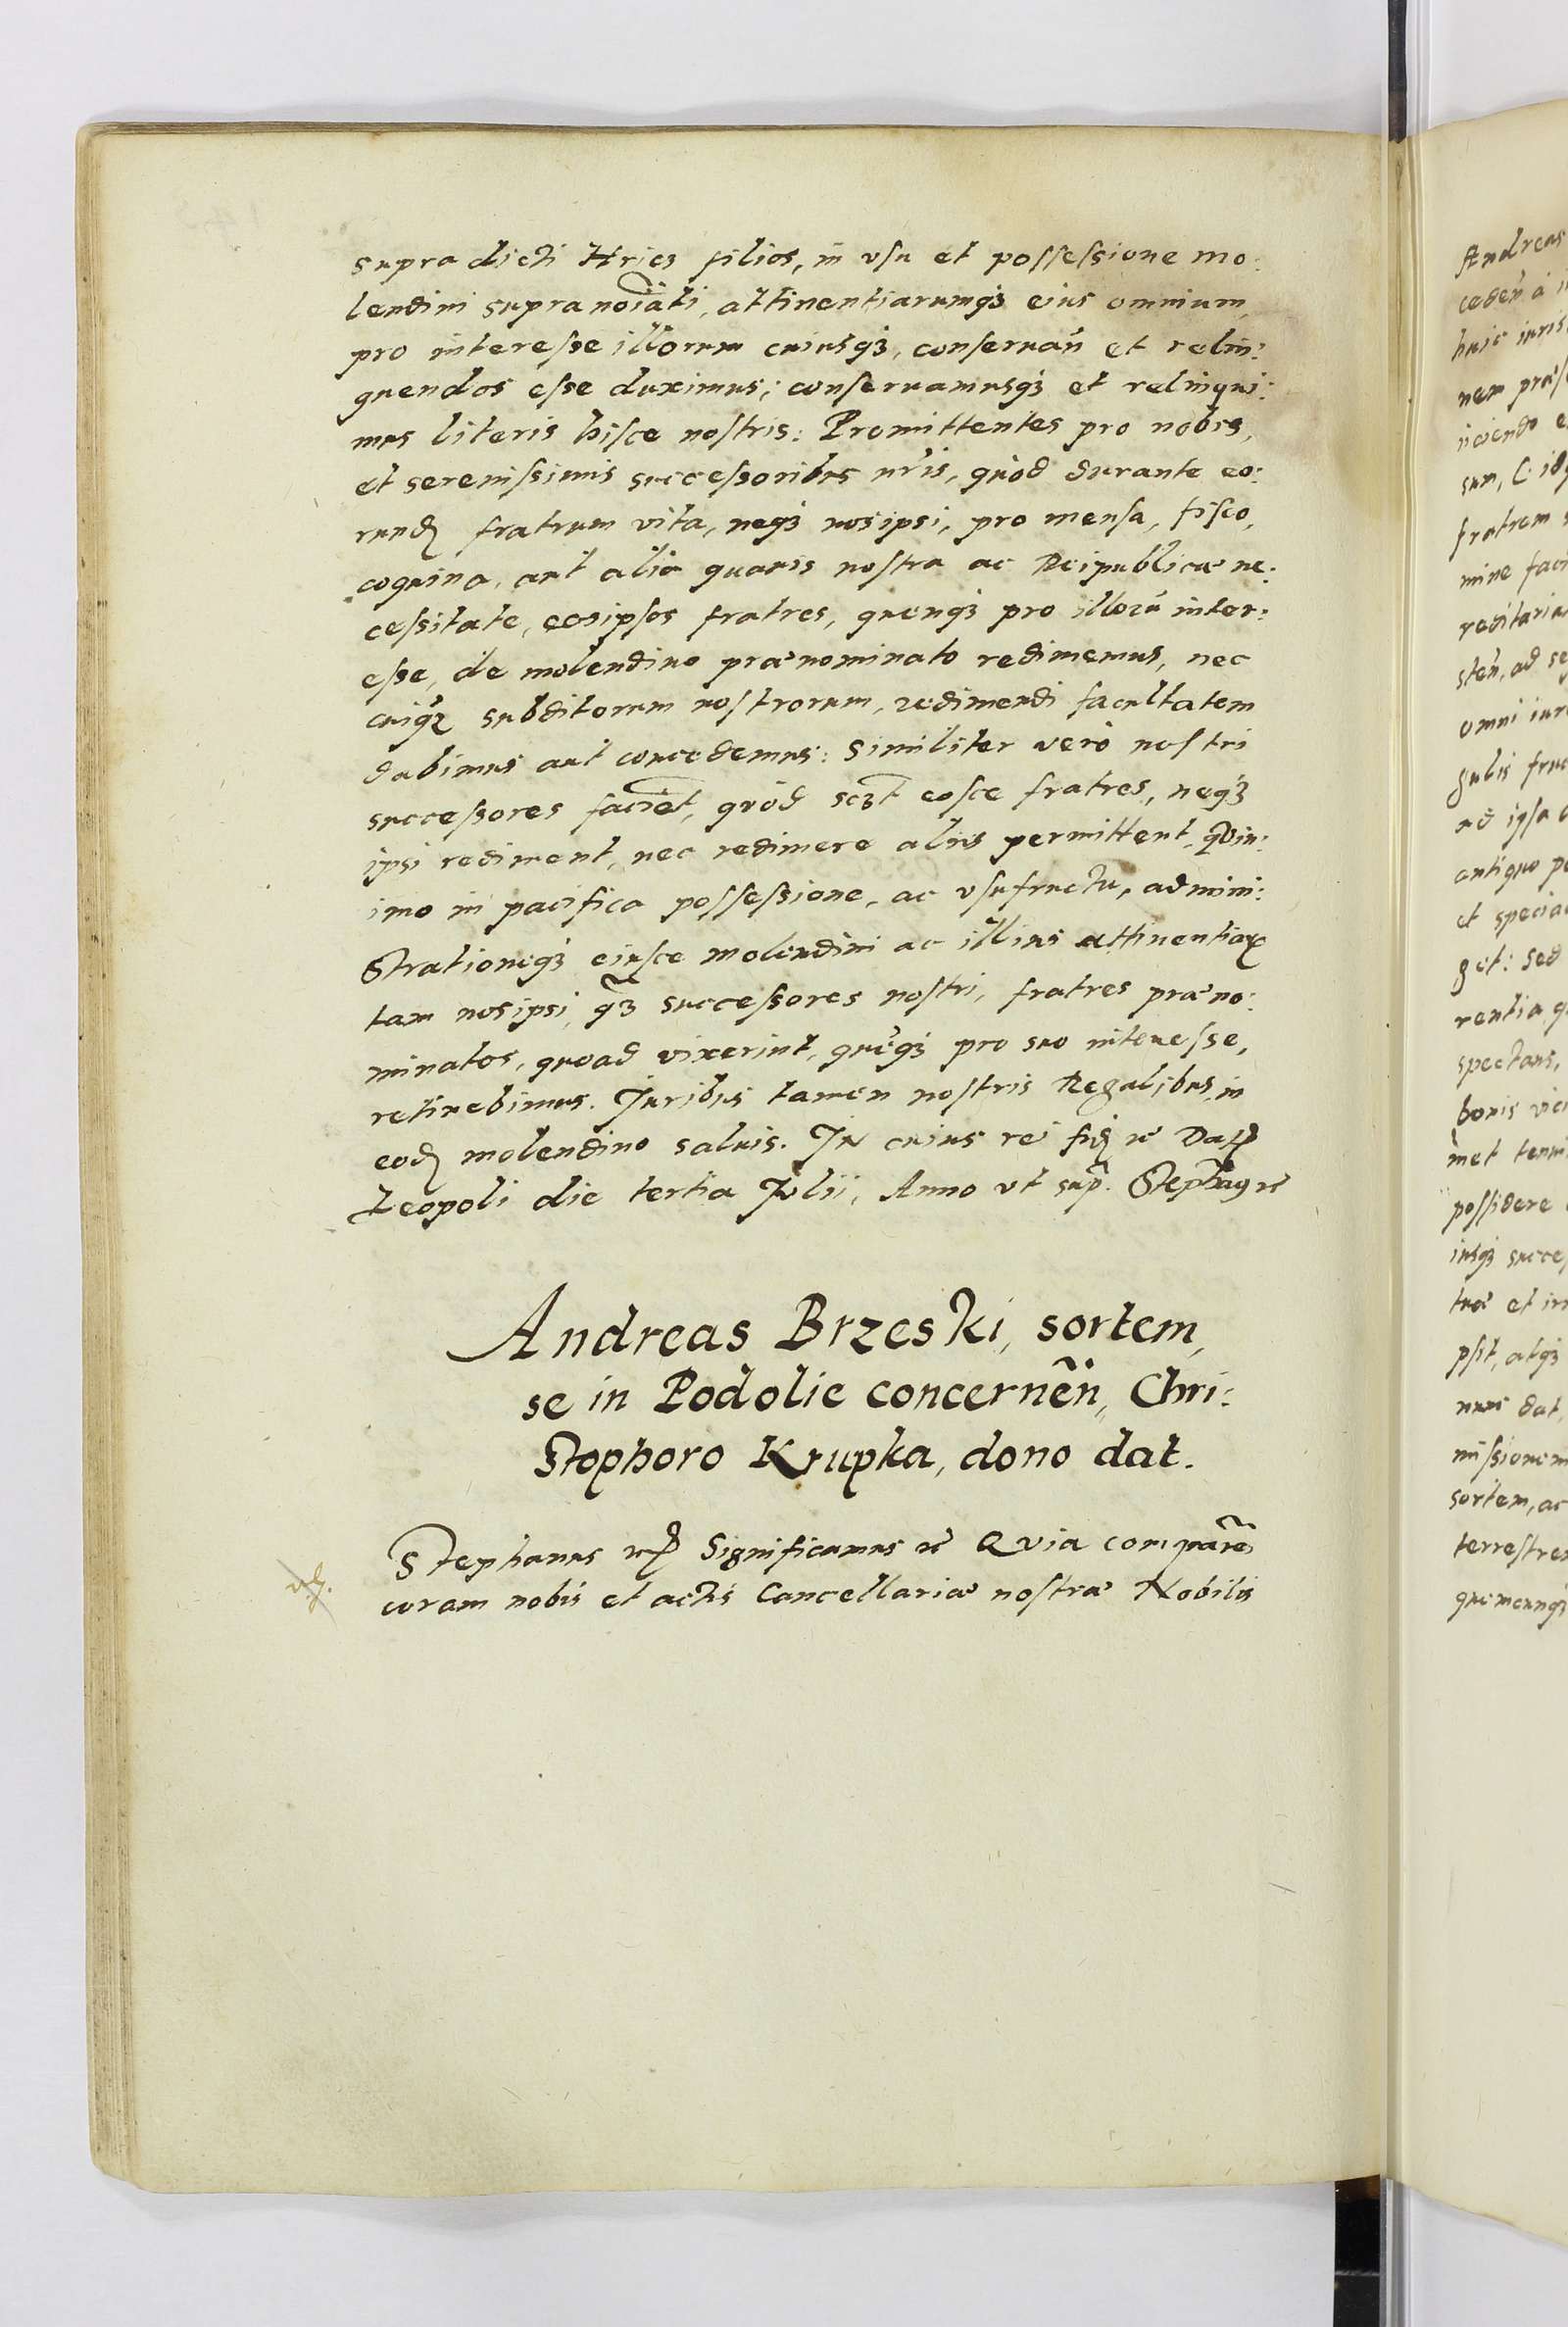 supra dicti Hricz filios, in vsu et possessione mo:
lendini supra noīati, attinentiarumqȝ eius omnium,
pro interesse illorum cuiusqȝ, conseruań et relin:
quendos esse duximus; conseruamusqȝ et relinqui:
mus literis hisce nostris: Promittentes pro nobis,
et serenissimis successoribus nr̄is, quòd durante eo:
rundꝫ fratrum vita, neqȝ nosipsi, pro mensa, fisco,
coquina, aut alia quauis nostra ac Reipublicæ ne:
cessitate, eosipsos fratres, quenqȝ pro illorū inter:
esse, de molendino prænominato redimemus, nec
cuiqȝ subditorum nostrorum, redimendi facultatem
dabimus aut concedemus: Similiter verò nostri
successores faciēt, quòd sczt eosce fratres, neqȝ
ipsi rediment, nec redimere aliis permittent, qūin:
imo in pacifica possessione, ac vsufructu, admini:
strationeqȝ eiusce molendini ac illius attinentiaꝝ
tam nosipsi, qȝ̃ successores nostri, fratres præno:
minatos, quoad vixerint, quēqȝ pro suo interesse,
retinebimus. Juribus tamen nostris Regalibus, in
eodꝫ molendino saluis. In cuius rei fidꝫ rc̄ Datꝫ
Leopoli die tertia Julii, Anno vt sup̄. Stephaꝰ rc̄
Andreas Brzeski, sortem,
se in Podolie concernēn, Chri:
stophoro Krupka, dono dat.
Stephanus rcꝫ Significamus rc̄ Quia comparēn
coram nobis et actis Cancellariæ nostræ Nobilis
Andreas
ceden̄ à
huic iuris
nem præs
iiciendo
sum,
fratrem
mine
reditariam
sten̄, ad
omni iure
gulis
ad ipsa
antiquo
et
get: sed
rentia,
spectans,
bonis
met
possidere
iusqȝ
et
psit, atqȝ
dat,
missionem
sortem, ac
terrestres
quemcunqȝ